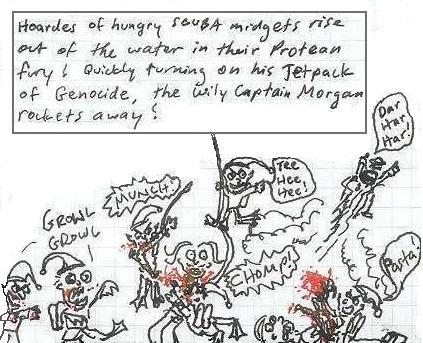 Hoardes of hungry SCUBA midgets rise
out of the water in their Protean
fury! Quickly turning on his Jetpack
of Genocide, the wily Captain Morgan
rockets away!
Dar
Har
Har!
Tee
Hee
Hee!
MUNCH!
GROWL
GROWL
CHOMP!
Pasta!